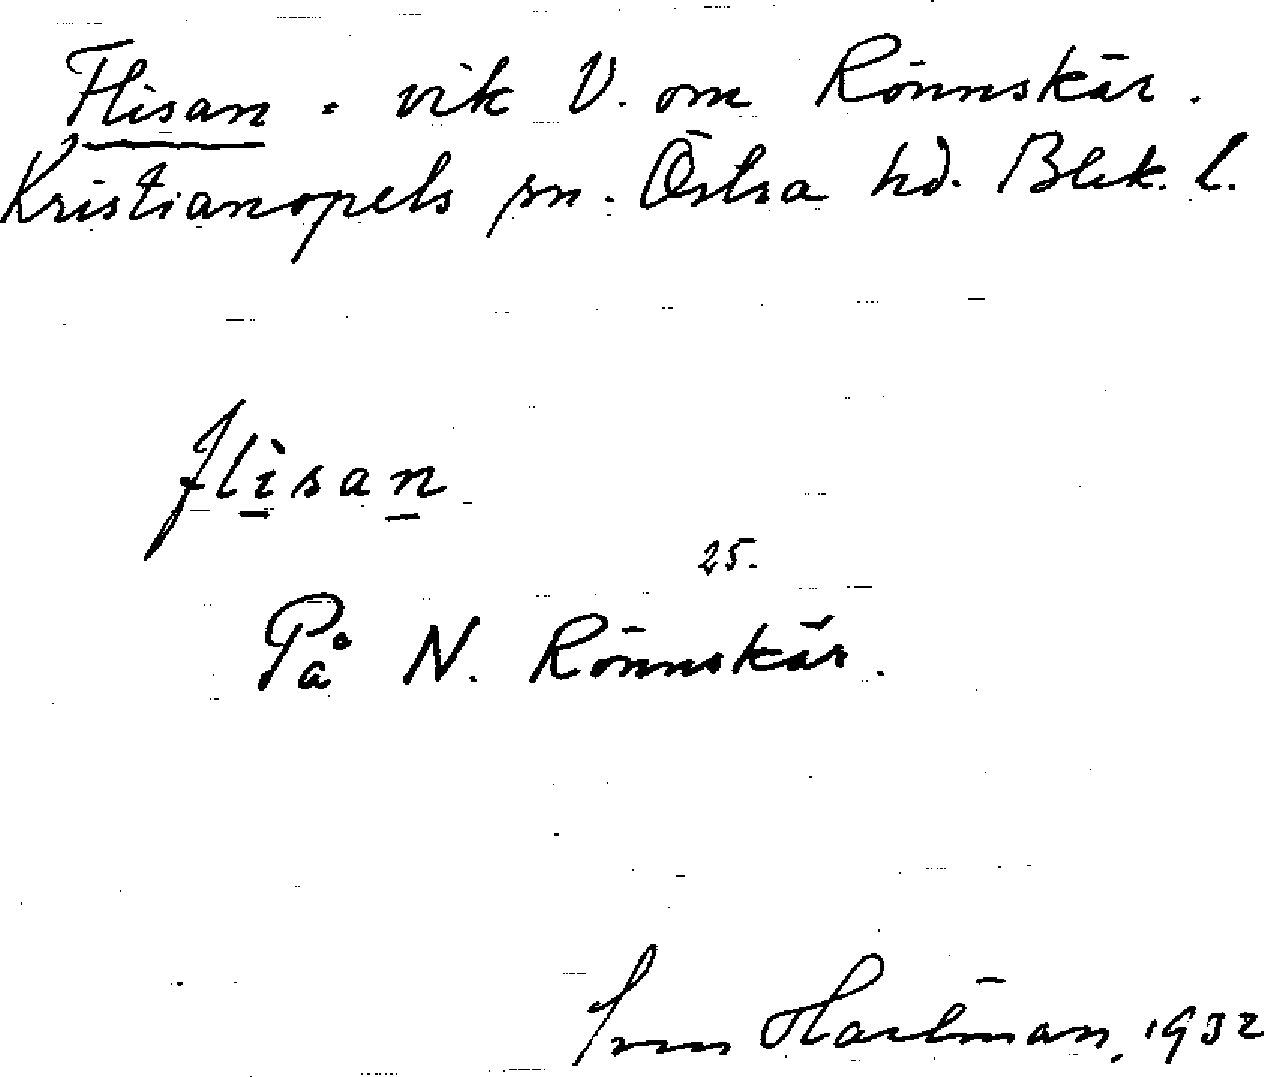 Flisan - vik V. om Rönnskär.
Kristianopels sn. Östra hd. Blek. l.
flisan
25.
På N. Rönnskär.
Hartman, 1932